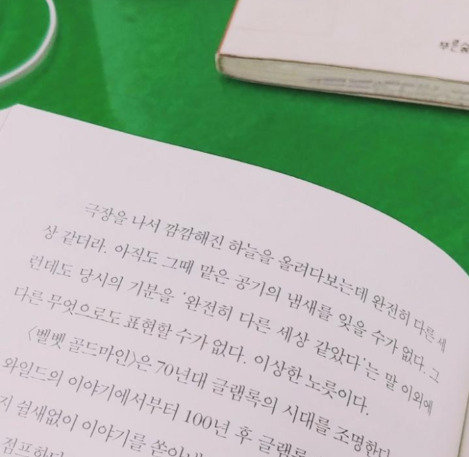 극장을 나서 깜깜해진 하늘을 올려다보는데 완전히 다른 세
상 같더라. 아직도 그때 맡은 공기의 냄새를 잊을 수가 없다. 그
런데도 당시의 기분을 ‘완전히 다른 세상 같았다’는 말 이외에
다른 무엇으로도 표현할 수가 없다. 이상한 노릇이다.
〈벨벳 골드마인〉은 70년대 글램록의 시대를 조명한다
와일드의 이야기에서부터 100년 후 글램록
지 쉴새없이 이야기를 쏟아내
점프한다